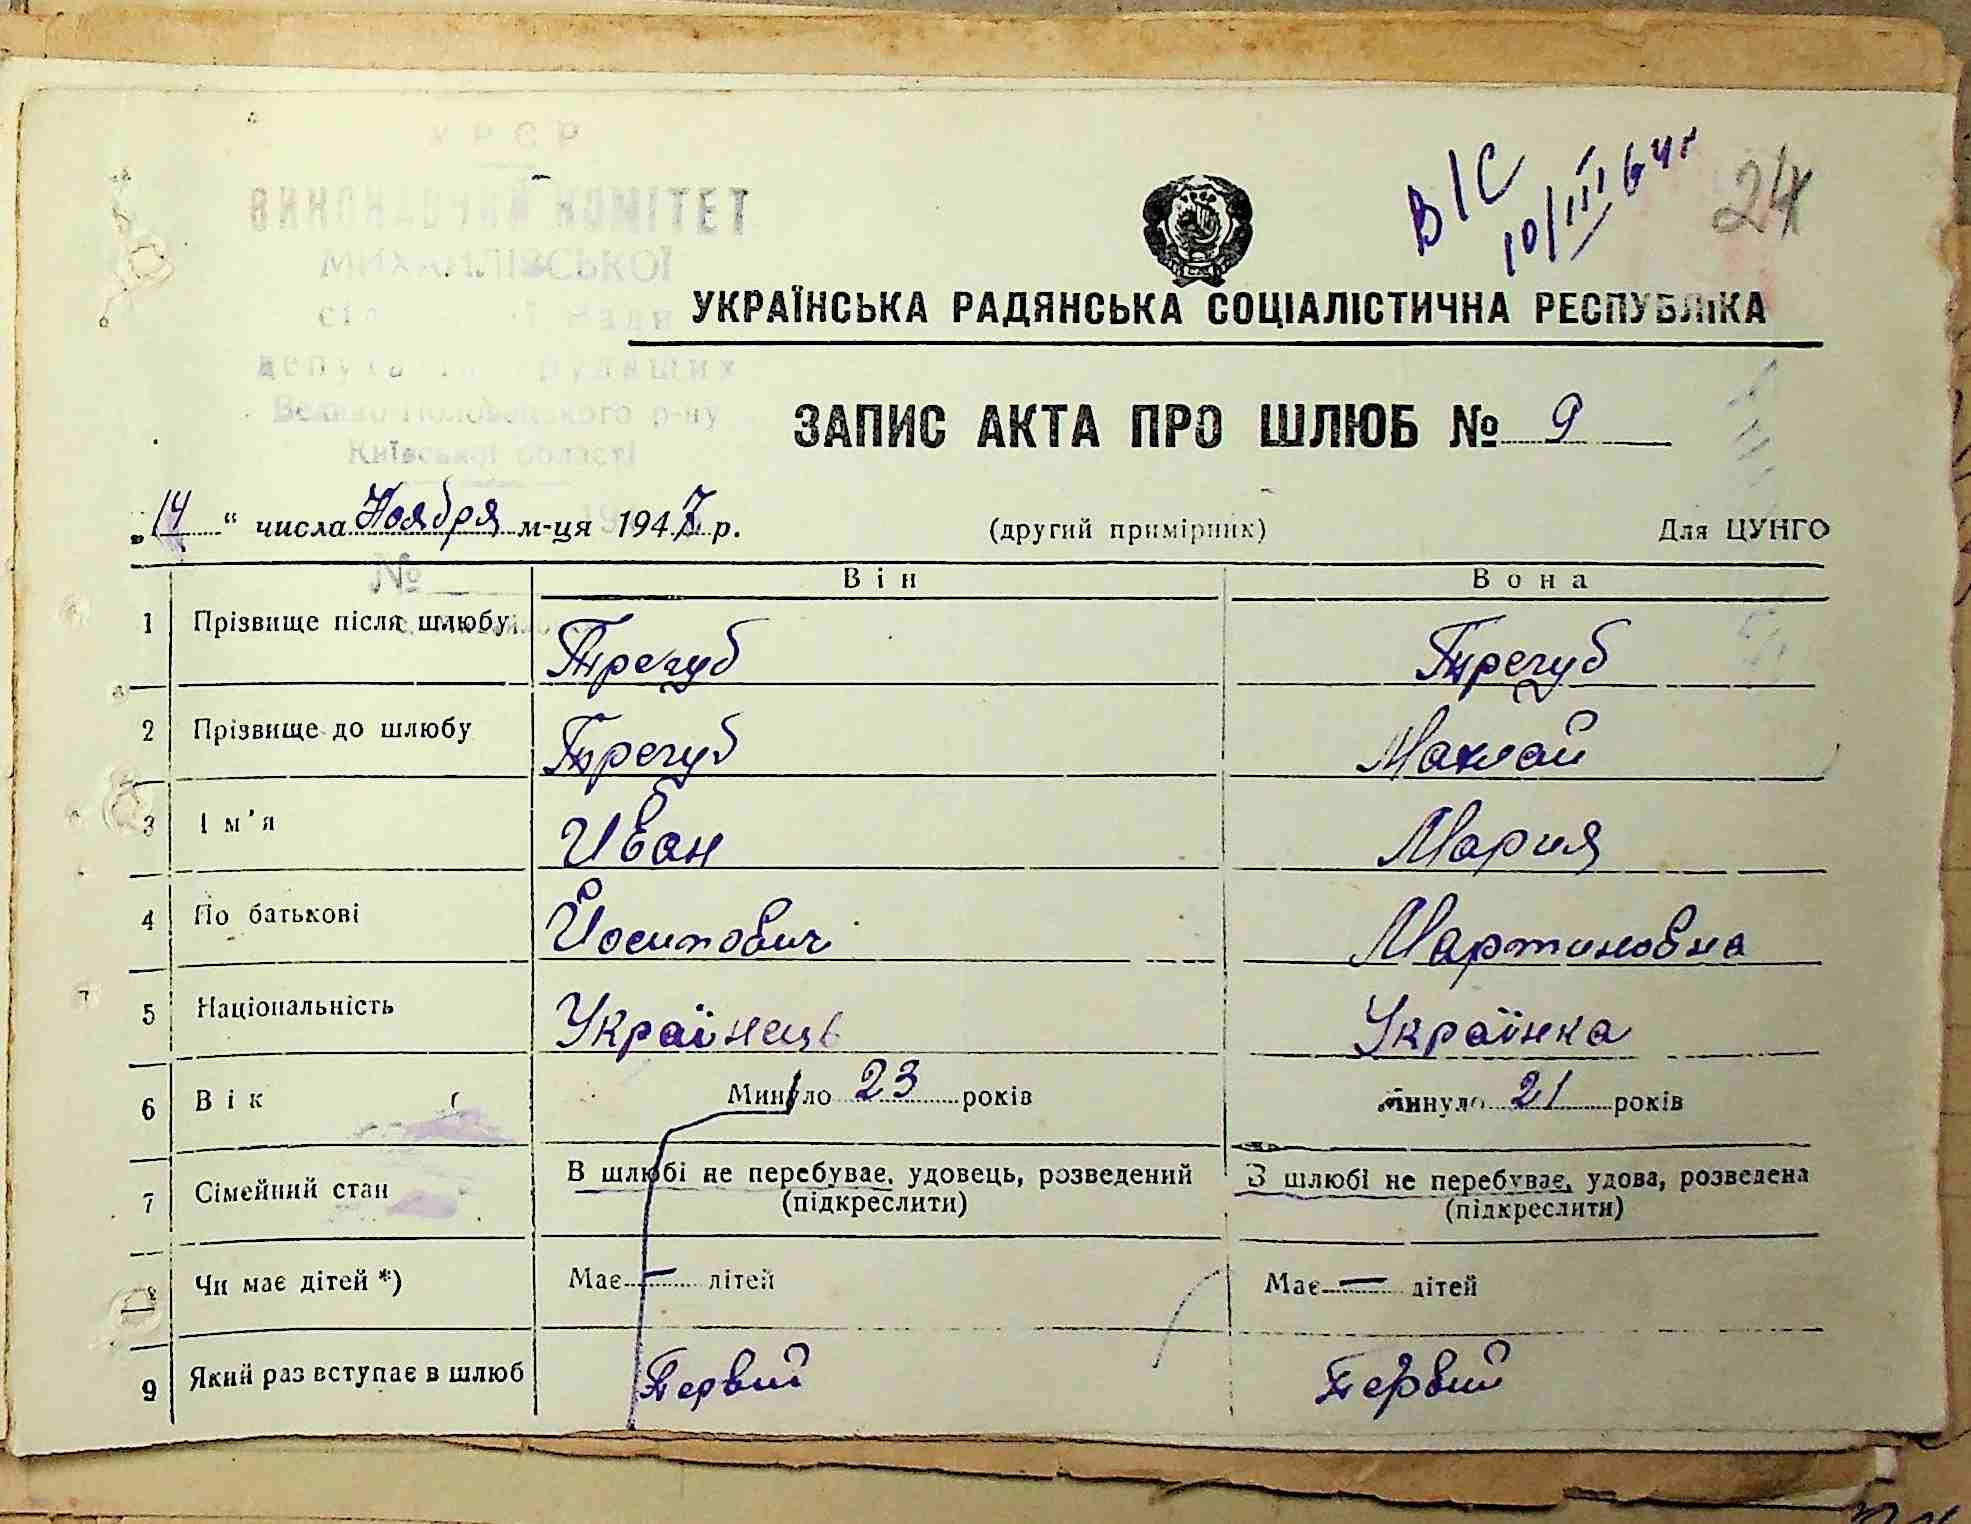 УРСР
ВИКОНАВЧИЙ КОМІТЕТ
МИХАЙЛІВСЬКОЇ
Київської області
В/С
10/III 64 г
24
УКРАЇНСЬКА РАДЯНСЬКА СОЦІАЛІСТИЧНА РЕСПУБЛІКА
ЗАПИС АКТА ПРО ШЛЮБ № 9
„14“ числа Ноября м-ця 1947 р. (другий примірник) Для ЦУНГО
№
Він Вона
1 Прізвище після шлюбу Трегуб Трегуб
2 Прізвище до шлюбу Трегуб Маклай
3 Ім'я Иван Мария
4 По батькові Йосипович Мартиновна
5 Національність Українець Українка
6 Вік Минуло 23 років Минуло 21 років
7 Сімейний стан В шлюбі не перебуває, удовець, розведений В шлюбі не перебуває, удова, розведена
(підкреслити) (підкреслити)
8 Чи має дітей *) Має — дітей Має — дітей
9 Який раз вступає в шлюб Первий Первий